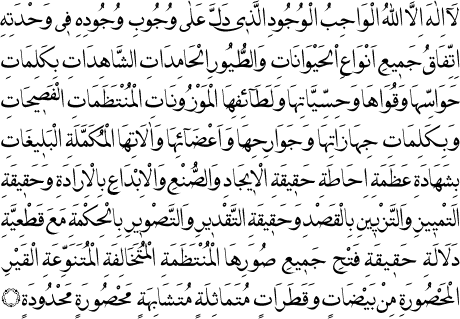 لَا اِلٰهَ اِلَّا اللّٰهُ الْوَاجِبُ الْوُجُودِ الَّذِى دَلَّ عَلٰى وُجُوبِ وُجُودِهِ فِى وَحْدَتِهِ
اِتِّفَاقُ جَمِيعِ اَنْوَاعِ الْحَيْوَانَاتِ وَالطُّيُورِ الْحَامِدَاتِ الشَّاهِدَاتِ بِكَلِمَاتِ
حَوَاسِّهَا وَقُوَاهَا وَحِسِّيَّاتِهَا وَلَطَائِفِهَا الْمَوْزُونَاتِ الْمُنْتَظَمَاتِ الْفَصِيحَاتِ
وَبِكَلِمَاتِ جِهَازَاتِهَا وَجَوَارِحِهَا وَاَعْضَائِهَا وَاٰلَاتِهَا الْمُكَمَّلَةِ الْبَلِيغَاتِ
بِشَهَادَةِ عَظَمَةِ اِحَاطَةِ حَقِيقَةِ الْاِيجَادِ وَالصُّنْعِ وَالْاِبْدَاعِ بِالْاِرَادَةِ وَحَقِيقَةِ
التَّمْيِيزِ وَالتَّزْيِينِ بِالْقَصْدِ وَحَقِيقَةِ التَّقْدِيرِ وَالتَّصْوِيرِ بِالْحِكْمَةِ مَعَ قَطْعِيَّةِ
دَلَالَةِ حَقِيقَةِ فَتْحِ جَمِيعِ صُوَرِهَا الْمُنْتَظَمَةِ الْمُتَخَالِفَةِ الْمُتَنَوِّعَةِ الْغَيْرِ
الْمَحْصُورَةِ مِنْ بَيْضَاتٍ وَقَطَرَاتٍ مُتَمَاثِلَةٍ مُتَشَابِهَةٍ مَحْصُورَةٍ مَحْدُودَةٍ